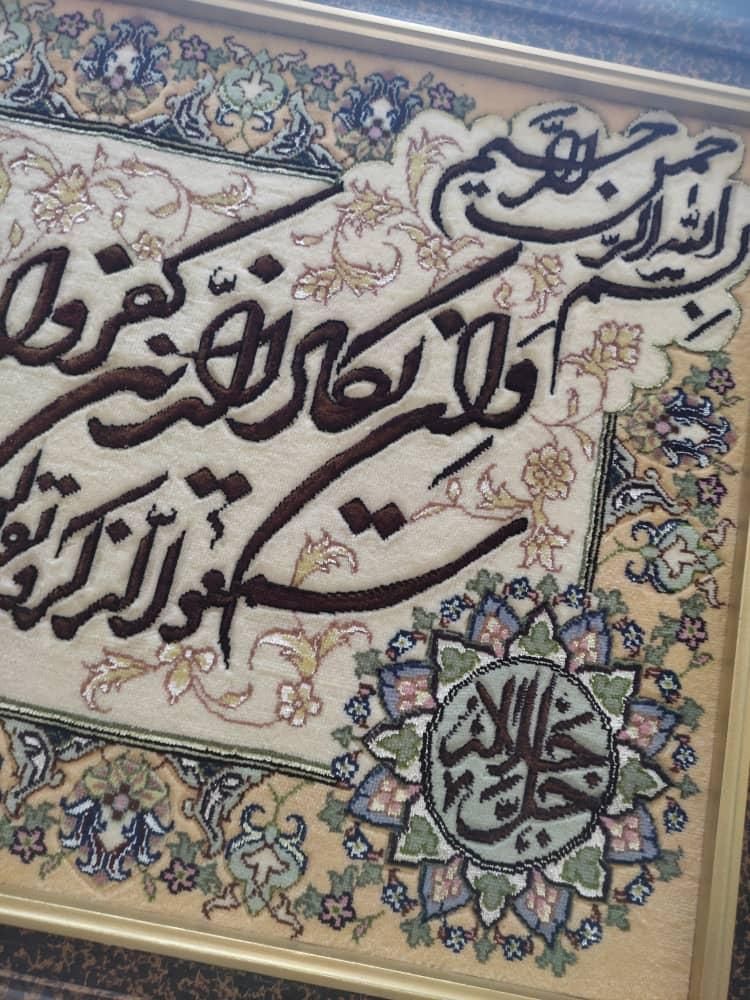 بسم الله الرحمن الرحیم
وان یکاد الذین کفروا
سمعوا الذکر و یقولو
جل جلاله